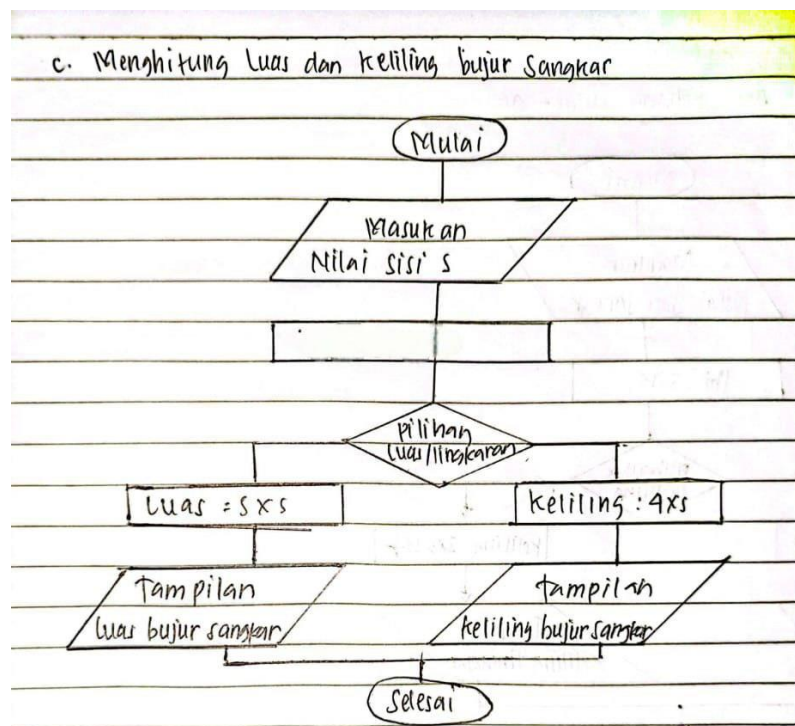 c. Menghitung Luas dan Keliling bujur Sangkar
Mulai
Masukan
Nilai sisi s
pilihan
luas/lingkaran
Luas = s x s
Keliling : 4xs
Tampilan
luas bujur sangkar
tampilan
keliling bujur sangkar
Selesai